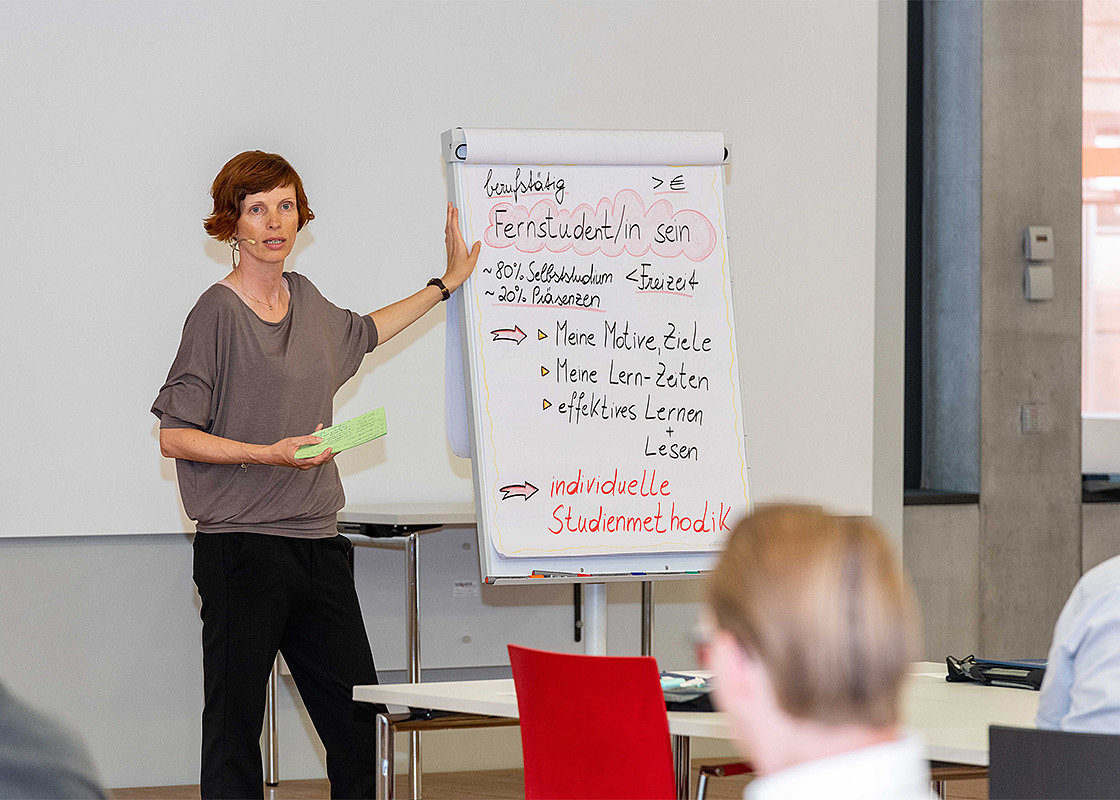 berufstätig > €
Fernstudent/in sein
~ 80% Selbststudium < Freizeit
~ 20% Präsenzen
Meine Motive, Ziele
Meine Lern-Zeiten
effektives Lernen
+
Lesen
individuelle
Studienmethodik